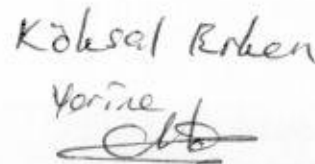 Köksal Erken
Yerine